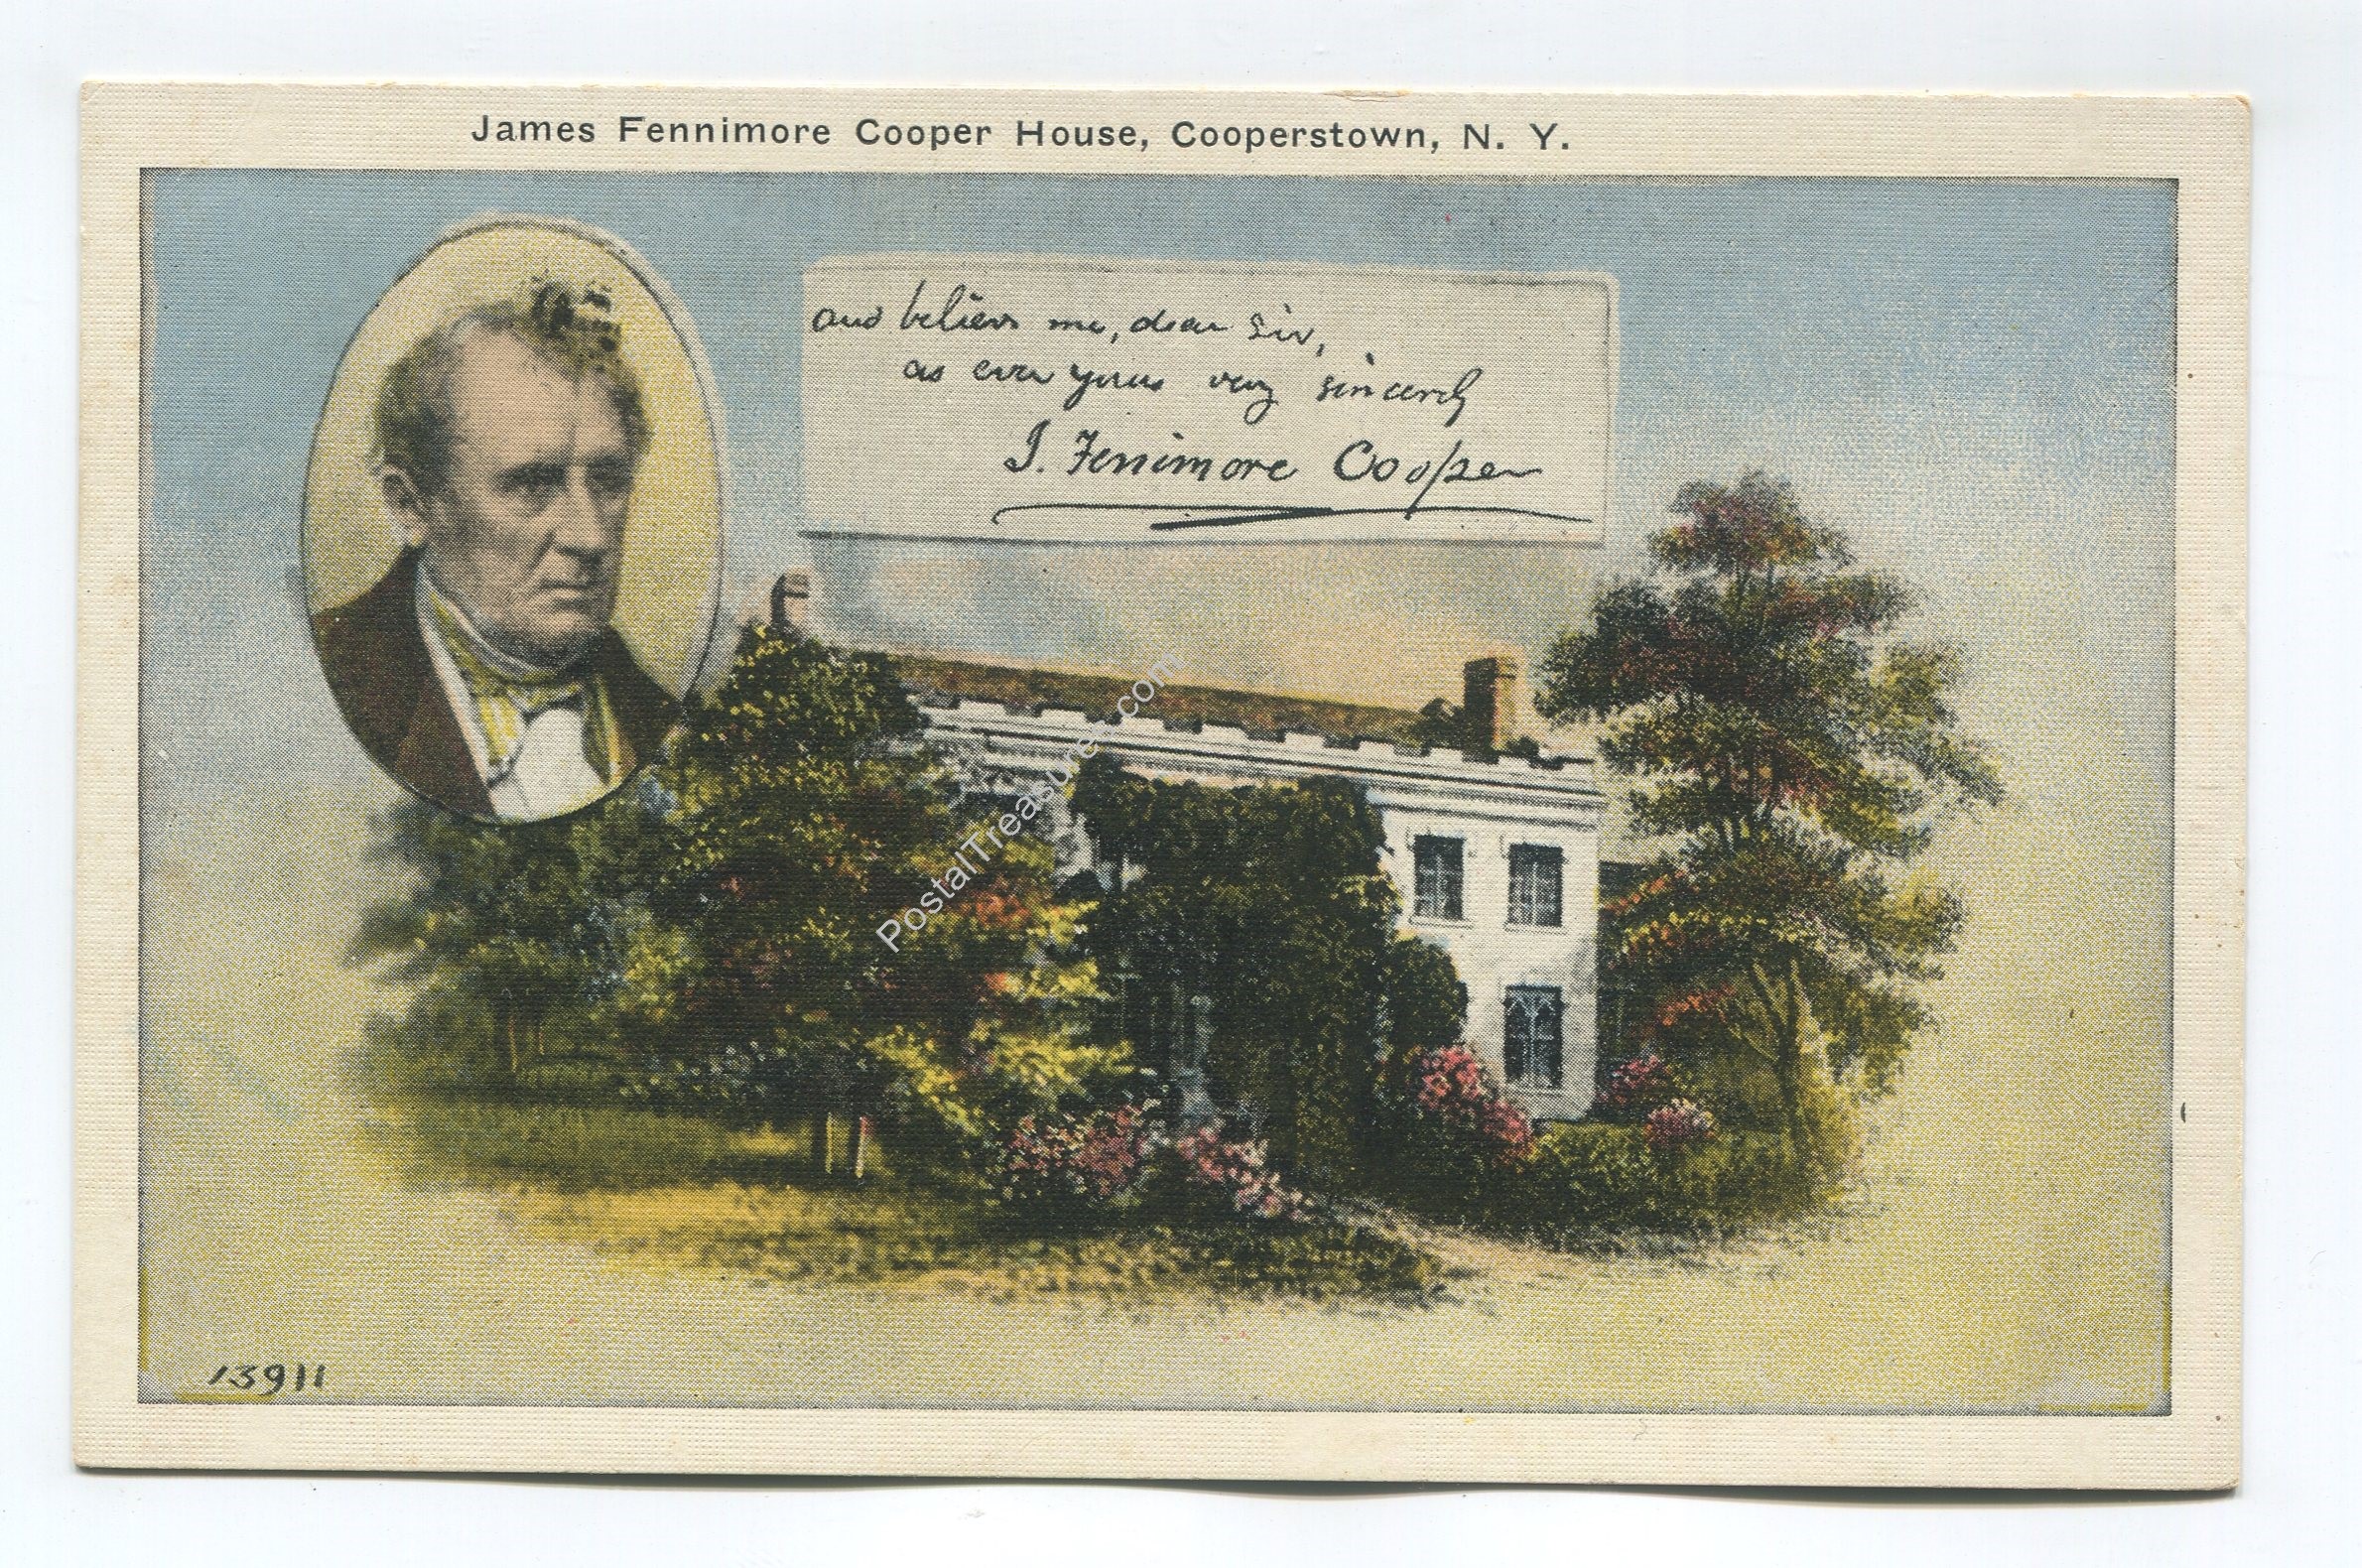 James Fennimore Cooper House, Cooperstown, N. Y.
and believe me, dear sir,
as ever yours very sincerely
J. Fenimore Cooper
PostalTreasures.com
13911